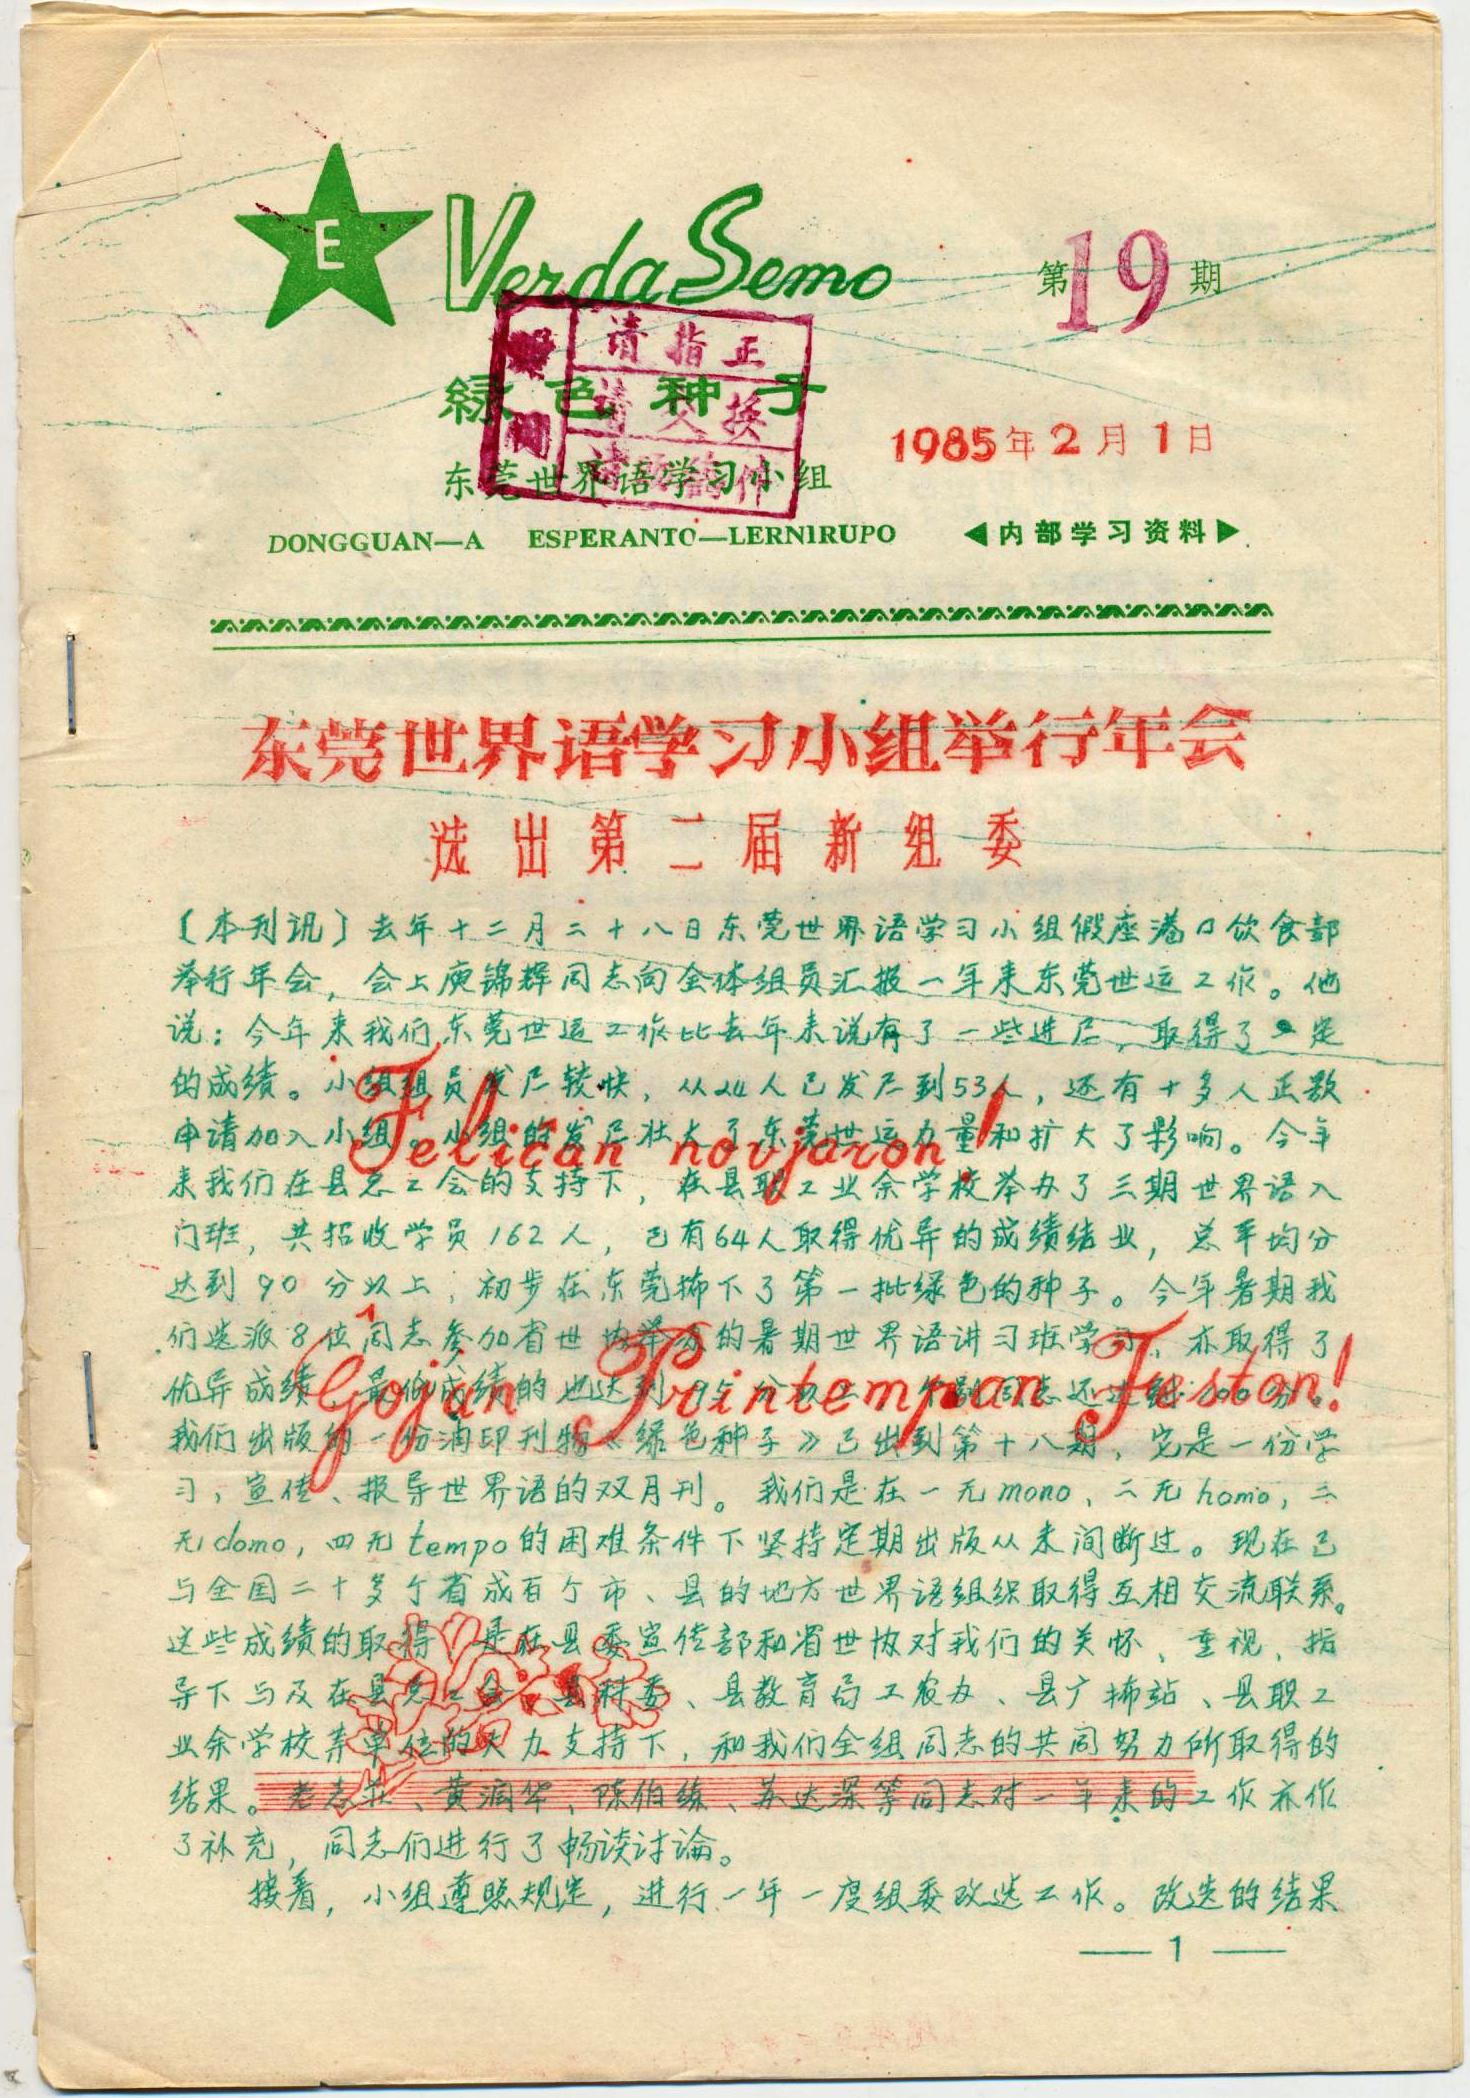 E
Verda Semo
第19期
請指正
請交換
綠色种子
1985年2月1日
东莞世界语学习小组
DONGGUAN—A ESPERANTO—LERNIRUPO
◀内部学习资料▶
东莞世界语学习小组举行年会
选出第二届新组委
〔本刊讯〕去年十二月二十八日东莞世界语学习小组假座港口饮食部
举行年会，会上庾锦辉同志向全体组员汇报一年来东莞世运工作。他
说：今年来我们东莞世运工作比去年来说有了一些进尸，取得了一定
的成绩。小组组员发尸较快，从24人已发尸到53人，还有十多人正款
申请加入小组。小组的发尸壮大了东莞世运力量和扩大了影响。今年
Feliĉan novjaron!
来我们在县总工会的支持下，在县职工业余学校举办了三期世界语入
门班，共招收学员162人，已有64人取得优异的成绩结业，总平均分
达到90分以上，初步在东莞播下了第一批绿色的种子。今年暑期我
们选派8位同志参加省世协举办的暑期世界语讲习班学习，亦取得了
优异成绩，最低成绩的也达到95分以上，个别同志还达到100分。
Ĝojan Printempan Feston!
我们出版的一份油印刊物《绿色种子》已出到第十八期，它是一份学
习，宣传、报导世界语的双月刊。我们是在一无mono，二无homo，三
无domo，四无tempo的困难条件下坚持定期出版从未间断过。现在已
与全国二十多个省成百个市、县的地方世界语组织取得互相交流联系。
这些成绩的取得，是在县委宣传部和省世协对我们的关怀、重视、指
导下与及在县总工会、县科委、县教育局工农办、县广播站、县职工
业余学校等单位的大力支持下，和我们全组同志的共同努力所取得的
结果。老志壮、黄润华、陈伯练、苏达深等同志对一年来的工作亦作
了补充，同志们进行了畅谈讨论。
接着，小组遵照规定，进行一年一度组委改选工作。改选的结果
— 1 —